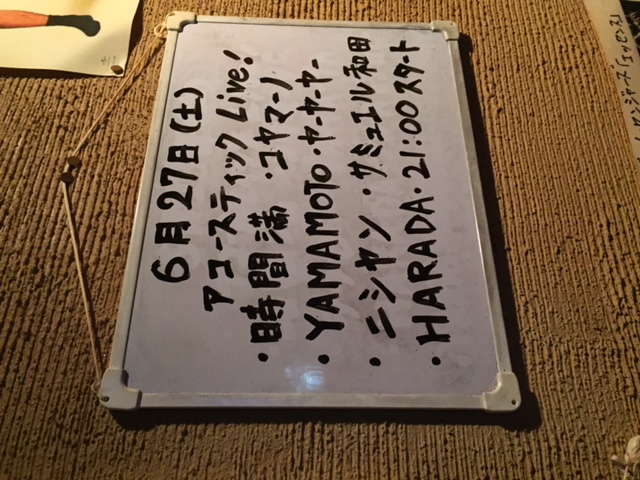 6月27日(土)
アコースティック Live!
・時間満・コヤマーノ
・YAMAMOTO・ヤーヤーヤー
・ニシヤン・サミュエル和田
・HARADA・21:00スタート